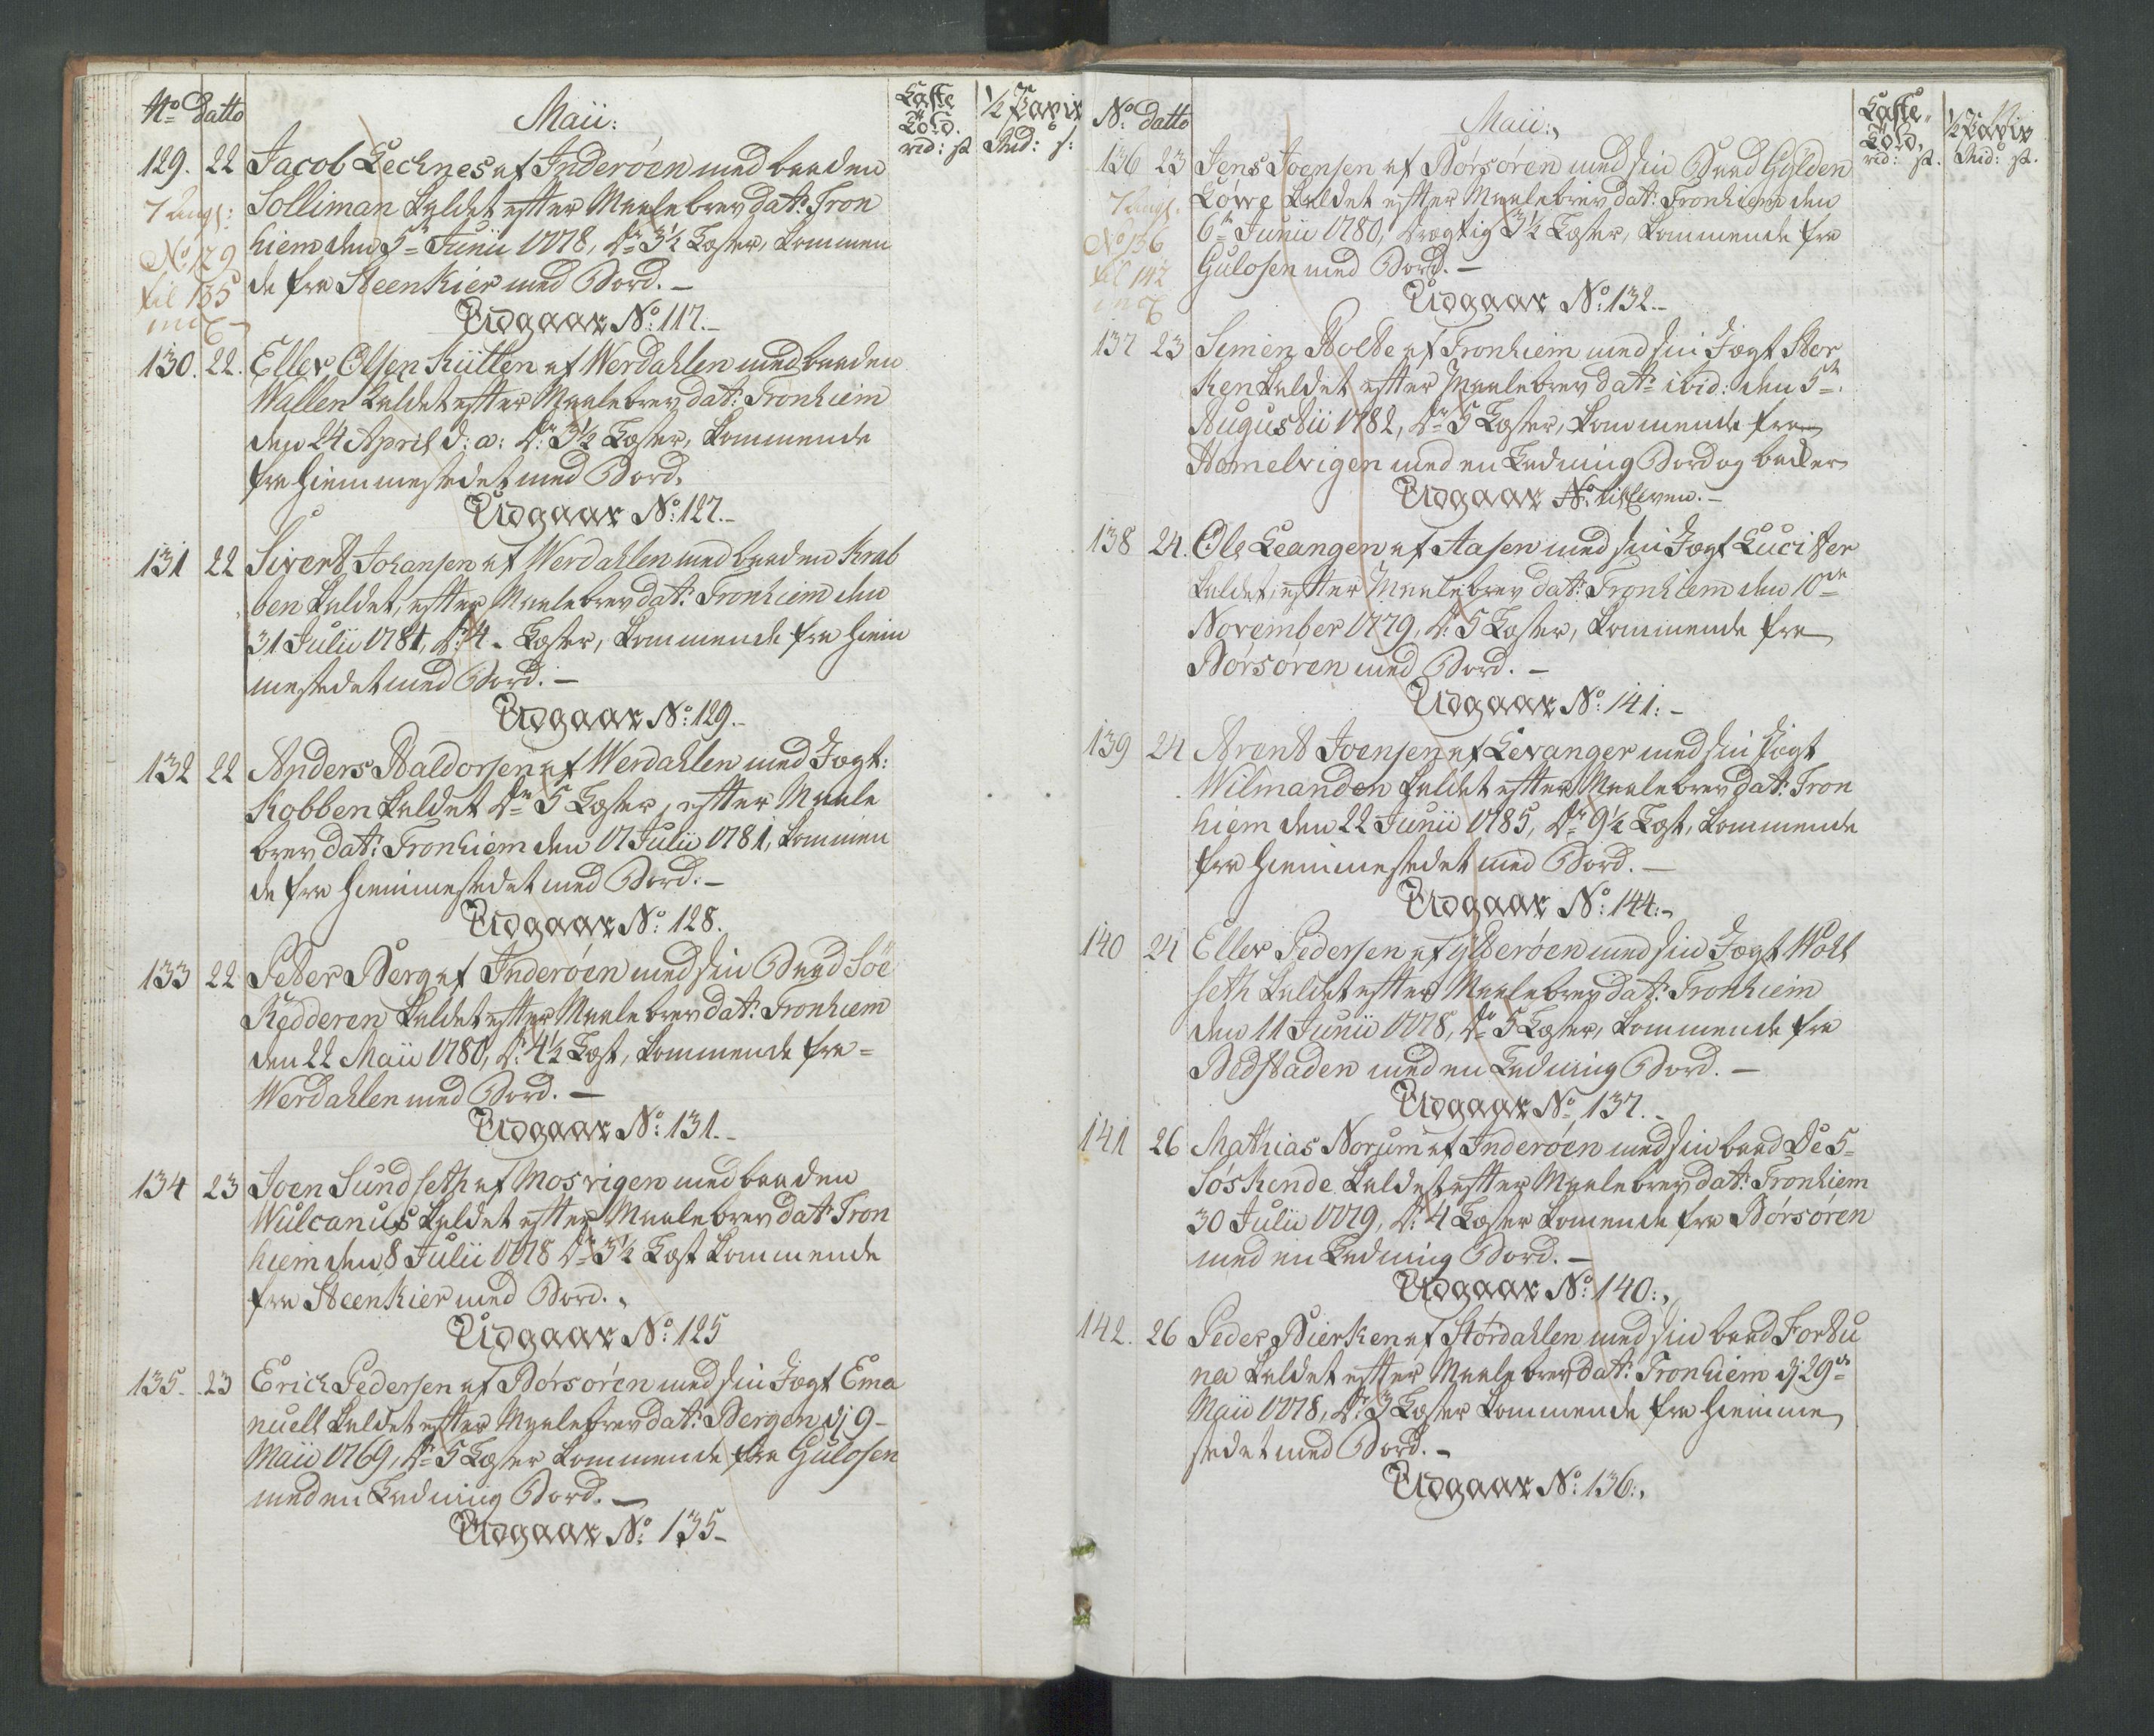 No datto Maii: Læste Told. ½ Paviæ
rd: s. Rd: s:
129. 22 Jacob Lechnes af Inderøen med baaden
Solliman kaldet efter Maalebrev dat: Tron
hiem den 5te Junii 1778, Dr 3½ Læster, kommen
de fra Steenkier med Bord. –
7 Angl:
No 129
til 135
incl
Udgaar No: 117. –
130. 22. Eller Olsen Kulten af Werdahlen med baaden
Wallen kaldet efter Maalebrev dat: Tronhiem
den 24 April d: a: Dr: 3½ Læster, kommende
fra Hiemmestedet med Bord.
Udgaar No: 127. –
131 22 Sivert Johansen af Werdahlen med baaden Krab
ben kaldet, efter Maalebrev dat: Tronhiem den
31 Julii 1784, Dr: 4 – Læster, kommende fra Hiem
mestedet med Bord. –
Udgaar No: 129. –
132 22 Anders Haldorsen af Werdahlen med Jagt:
Kobben kaldet Dr 5 Læster, efter Maale
brev dat: Tronhiem den 17 Julii 1781, kommen
de fra Hiemmestedet med Bord. –
Udgaar No: 128.
133 22 Peter Berg af Inderøen med sin Baad Söe
Rødderen kaldet efter Maalebrev dat: Tronhiem
den 22 Maii 1780, Dr: 4½ Læst, kommende fra =
Werdahlen med Bord. –
Udgaar No: 131. –
134 23 Joen Sundseth af Mosvigen med baaden
Wulcanus kaldet efter Maalebrev dat: Tron
hiem den 8 Julii 1778 Dr 3½ Læst kommende
fra Steenkier med Bord. ,
Udgaar No: 125
135. 23 Erich Pedersen af Børsøren med sin Jagt Ema
nuell kaldet efter Maalebrev dat: Bergen dj 9 –
Maii 1769, Dr 5 Læster kommende fra Gulosen
med en Ladning Bord. –
Udgaar No: 135 –
No: datto Maii: , Læste Told, ½ Paviæ
rd: s. Rd: s.
136 23 Jens Joensen af Børsøren med sin Baad Gylden
Løwe kaldet efter Maalebrev dat: Tronhiem den
6te Junii 1780, drægtig 3½ Læster, kommende fra
Gulosen med Bord. –
7 Angl.
No 136
til 142
incl
Udgaar No: 132. –
137 23 Simen Holte af Tronhiem med sin Jagt Stor
ken kaldet efter Maalebrev dat: ibid: den 5te.
Augustii 1782, Dr 5 Læster, kommende fra
Homelvigen med en Ladning Bord og
Udgaar No:
138 24. Ole Leangen af Aasen med sin Jagt Lucifer
kaldet, efter Maalebrev dat: Tronhiem den 10de
November 1779, Dr: 5 Læster, kommende fra
Børsøren med Bord. –
Udgaar No: 141: –
139 24 Arent Joensen af Levanger med sin Jagt
Wilmanden kaldet efter Maalebrev dat: Tron
hiem den 22 Junii 1785, Dr 9½ Læst, kommende
fra Hiemmestedet med Bord. –
Udgaar No: 144: –
140 24 Eller Pedersen af Ytterøen med sin Jagt Holt
seth kaldet efter Maalebrev dat: Tronhiem
den 11 Junii 1778, Dr 5 Læster, kommende fra
Bedstaden med en Ladning Bord. –
Udgaar No 137. –
141 26 Mathias Norum af Inderøen med sin baad De 5 –
Søskende kaldet efter Maalebrev dat: Tronhiem
30 Julii 1779, Dr: 4 Læster komende fra Børsøren
med en Ladning Bord. –
Udgaar No: 140: ,
142. 26 Peder Bierken af Størdahlen med sin baad Fortu
na kaldet efter Maalebrev dat: Tronhiem dj 29de
Maii 1778, Dr: 3 Læster kommende fra Hiemme
stedet med Bord. –
Udgaar No: 136: ,